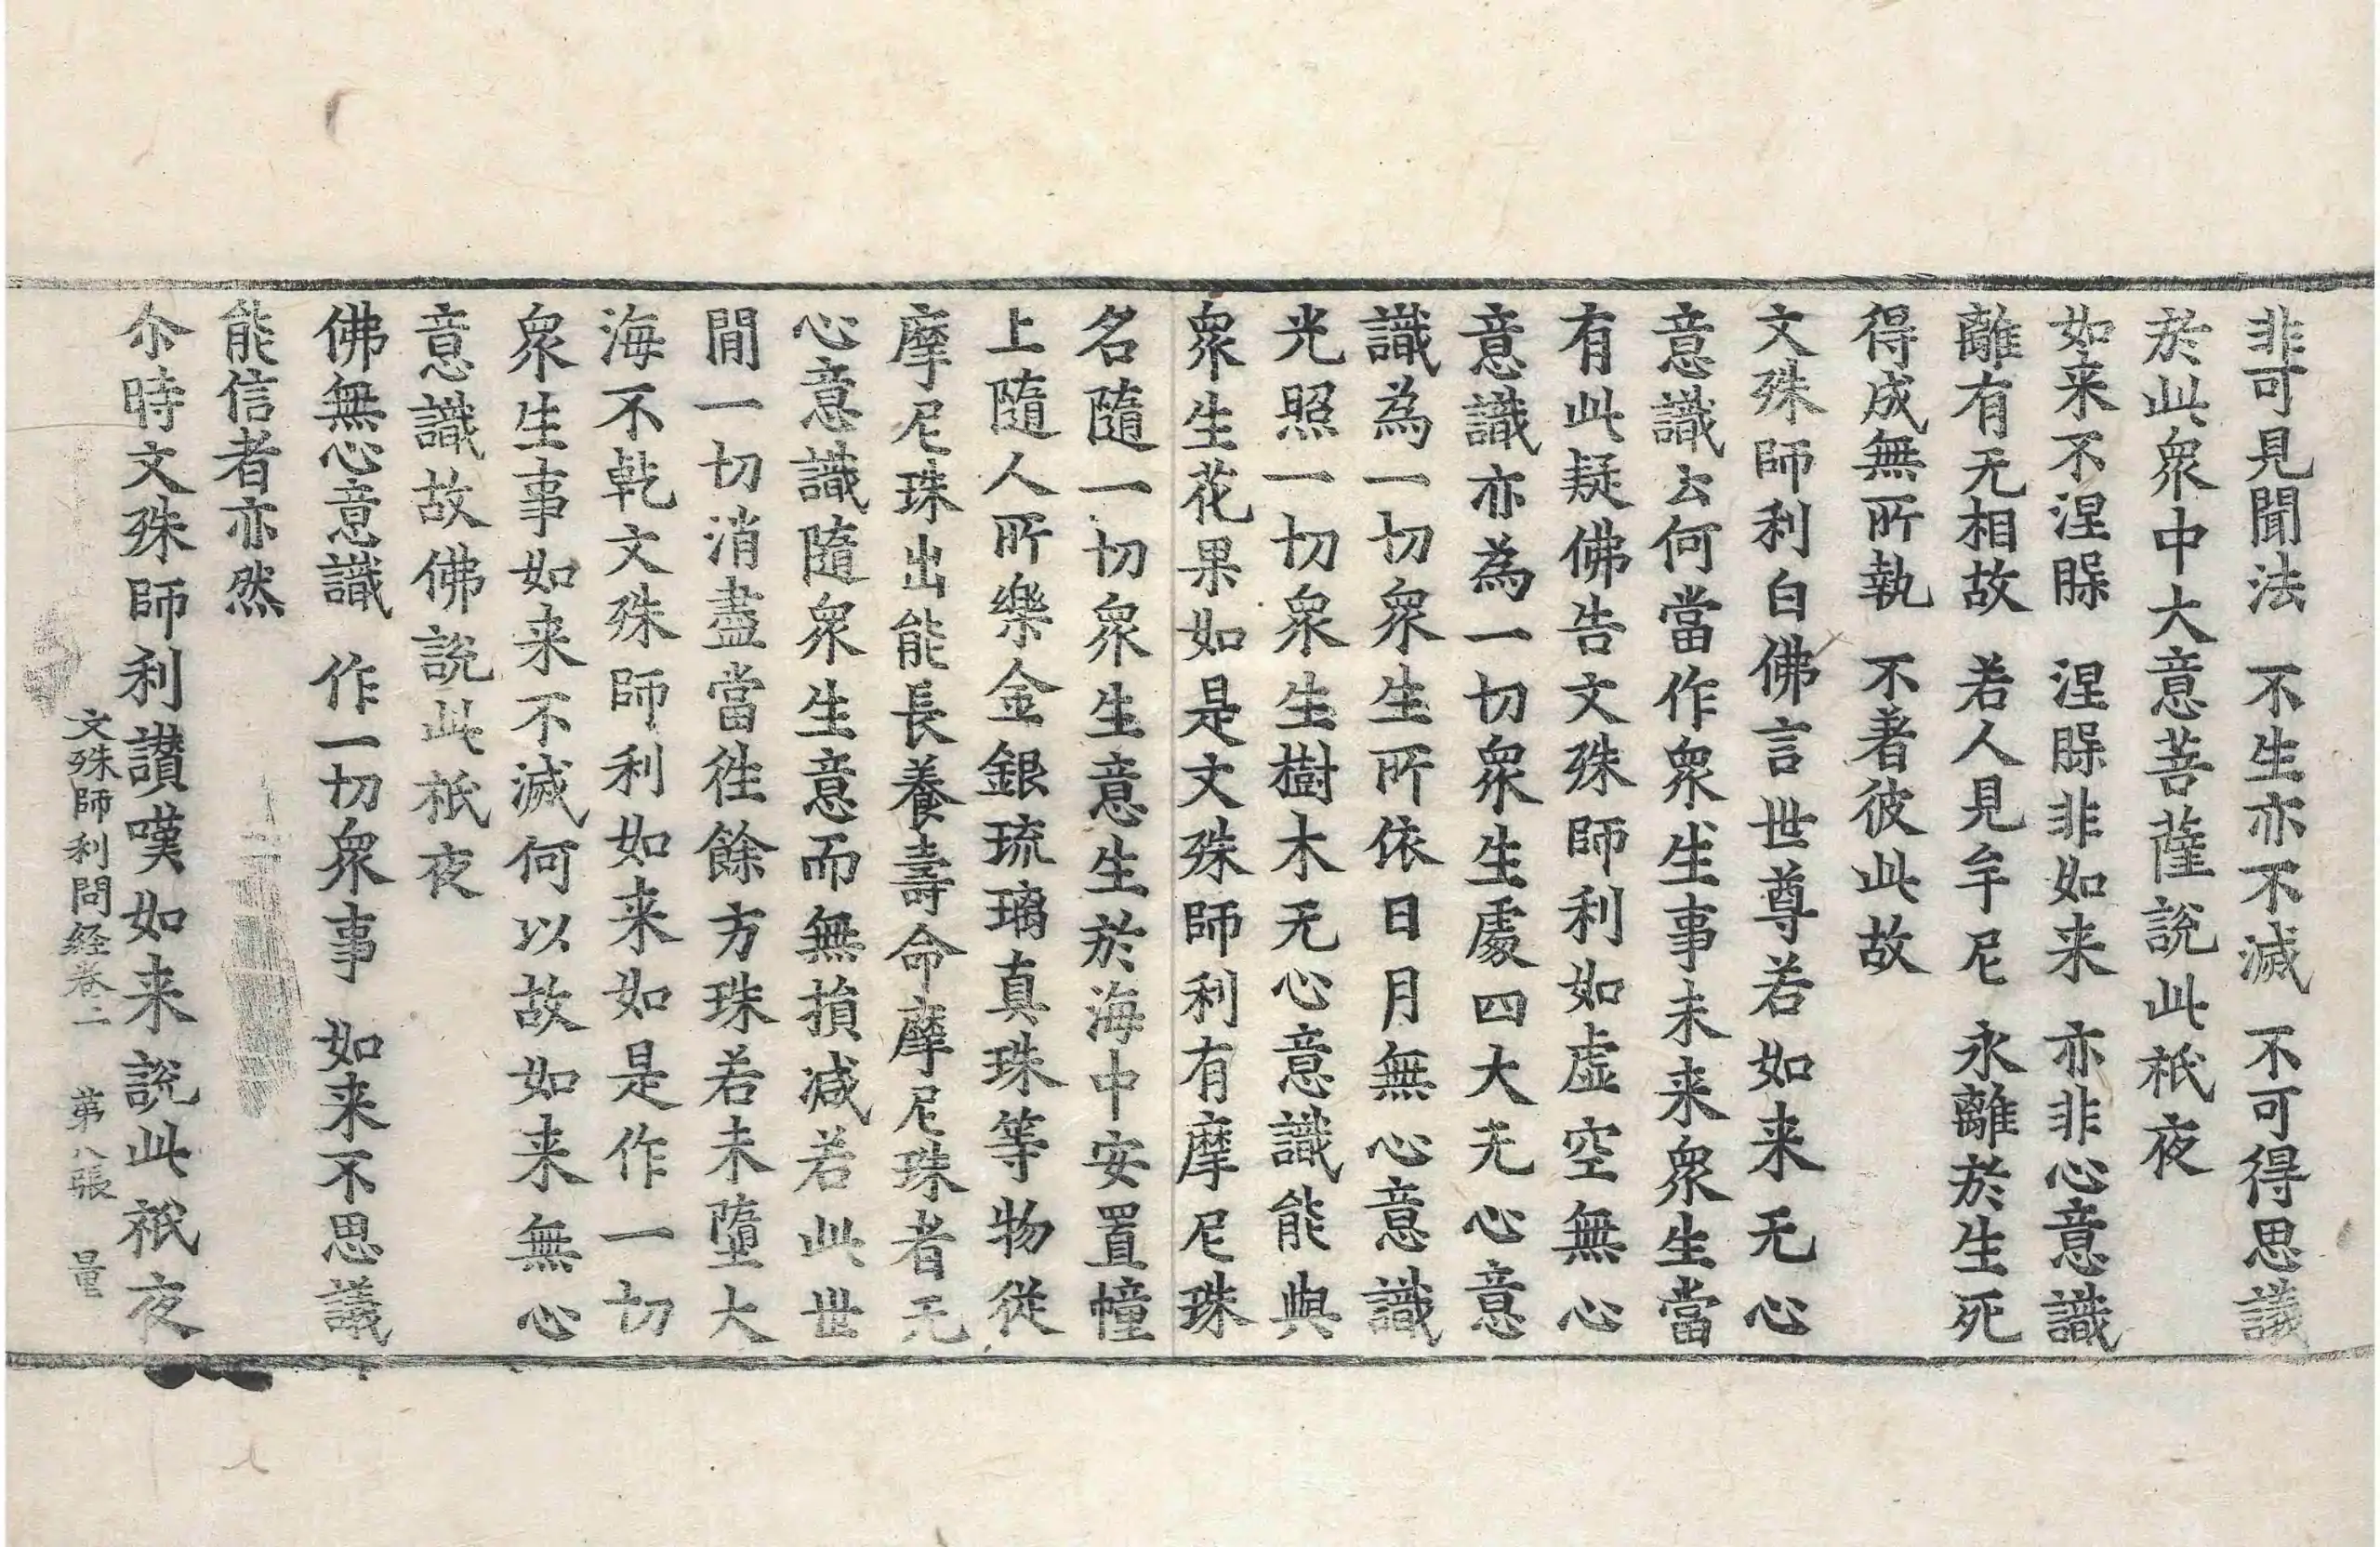 非可見聞法　不生亦不滅　不可得思議
於此衆中大意菩薩說此祇夜
如来不涅槃　涅槃非如来　亦非心意識
離有无相故　若人見牟尼　永離於生死
得成無所執　不著彼此故
文殊師利白佛言世尊若如来无心
意識云何當作衆生事未来衆生當
有此疑佛告文殊師利如虛空無心
意識亦為一切衆生處四大无心意
識為一切衆生所依日月無心意識
光照一切衆生樹木无心意識能與
衆生花果如是文殊師利有摩尼珠
名隨一切衆生意生於海中安置幢
上隨人所樂金銀琉璃真珠等物從
摩尼珠出能長養壽命摩尼珠者无
心意識隨衆生意而無損减若此世
閒一切消盡當徃餘方珠若未墮大
海不乾文殊師利如来如是作一切
衆生事如来不滅何以故如来無心
意識故佛說此祇夜
佛無心意識　作一切衆事　如来不思議
能信者亦然
尒時文殊師利讃嘆如来說此祇夜
文殊師利問経卷二　第八張　量